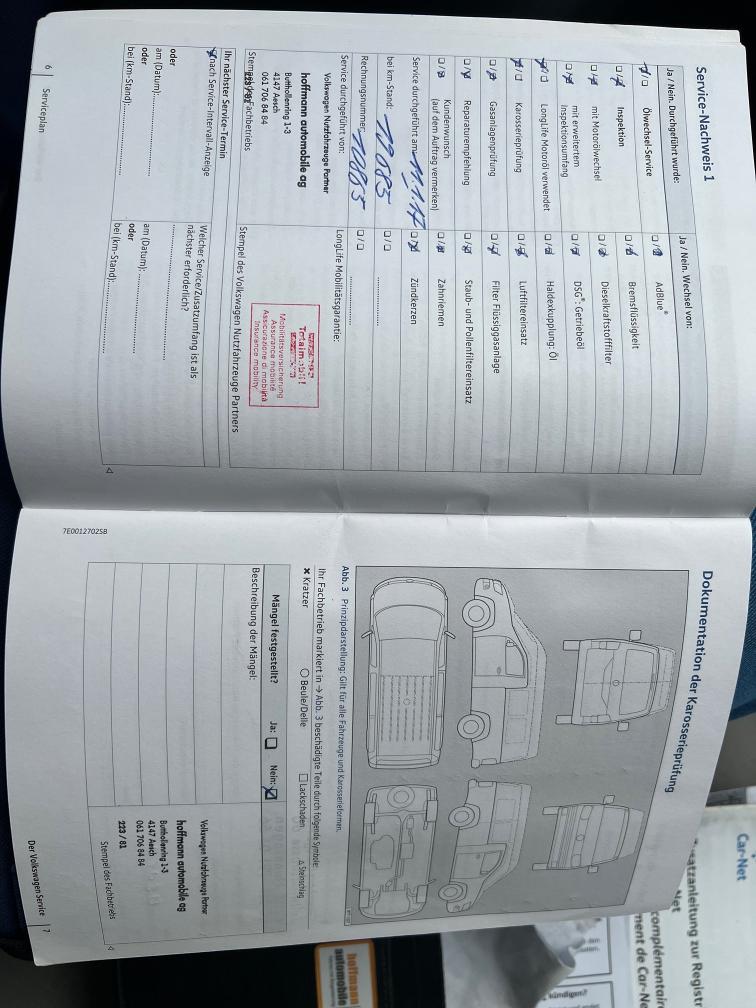 Service-Nachweis 1
Ja / Nein. Durchgeführt wurde:
Ja / Nein. Wechsel von:
Ölwechsel-Service
AdBlue®
Inspektion
Bremsflüssigkeit
mit Motorölwechsel
Dieselkraftstofffilter
mit erweitertem
Inspektionsumfang
DSG®: Getriebeöl
LongLife Motoröl verwendet
Haldexkupplung: Öl
Karosserieprüfung
Luftfiltereinsatz
Gasanlagenprüfung
Filter Flüssiggasanlage
Reparaturempfehlung
Staub- und Pollenfiltereinsatz
Kundenwunsch
(auf dem Auftrag vermerken)
Zahnriemen
Service durchgeführt am:
Zündkerzen
bei km-Stand: 19885
Rechnungsnummer:
Service durchgeführt von:
LongLife Mobilitätsgarantie:
Volkswagen Nutzfahrzeuge Partner
hoffmann automobile ag
Butthollenring 1-3
4147 Aesch
061 706 84 84
223 / 81
Stempel des Fachbetriebs
Totalmobil!
Mobilitätsversicherung
Assurance mobilité
Assicurazione di mobilità
Insurance mobility
Stempel des Volkswagen Nutzfahrzeuge Partners
Ihr nächster Service-Termin
nach Service-Intervall-Anzeige
oder
am (Datum):
oder
bei (km-Stand):
Welcher Service/Zusatzumfang ist als
nächster erforderlich?
am (Datum):
oder
bei (km-Stand):
6 | Serviceplan
7E0012702SB
Dokumentation der Karosserieprüfung
Abb. 3 Prinzipdarstellung: Gilt für alle Fahrzeuge und Karosserieformen.
Ihr Fachbetrieb markiert in → Abb. 3 beschädigte Teile durch folgende Symbole:
✖ Kratzer
○ Beule/Delle
□ Lackschaden
△ Steinschlag
Mängel festgestellt? Ja: Nein:
Beschreibung der Mängel:
Volkswagen Nutzfahrzeuge Partner
hoffmann automobile ag
Butthollenring 1-3
4147 Aesch
061 706 84 84
223 / 81
Stempel des Fachbetriebs
Der Volkswagen Service | 7
Car-Net
usatzanleitung zur Registr
Net
complémentair
ment de Car-N
kündigen?
hoffmann
automobile